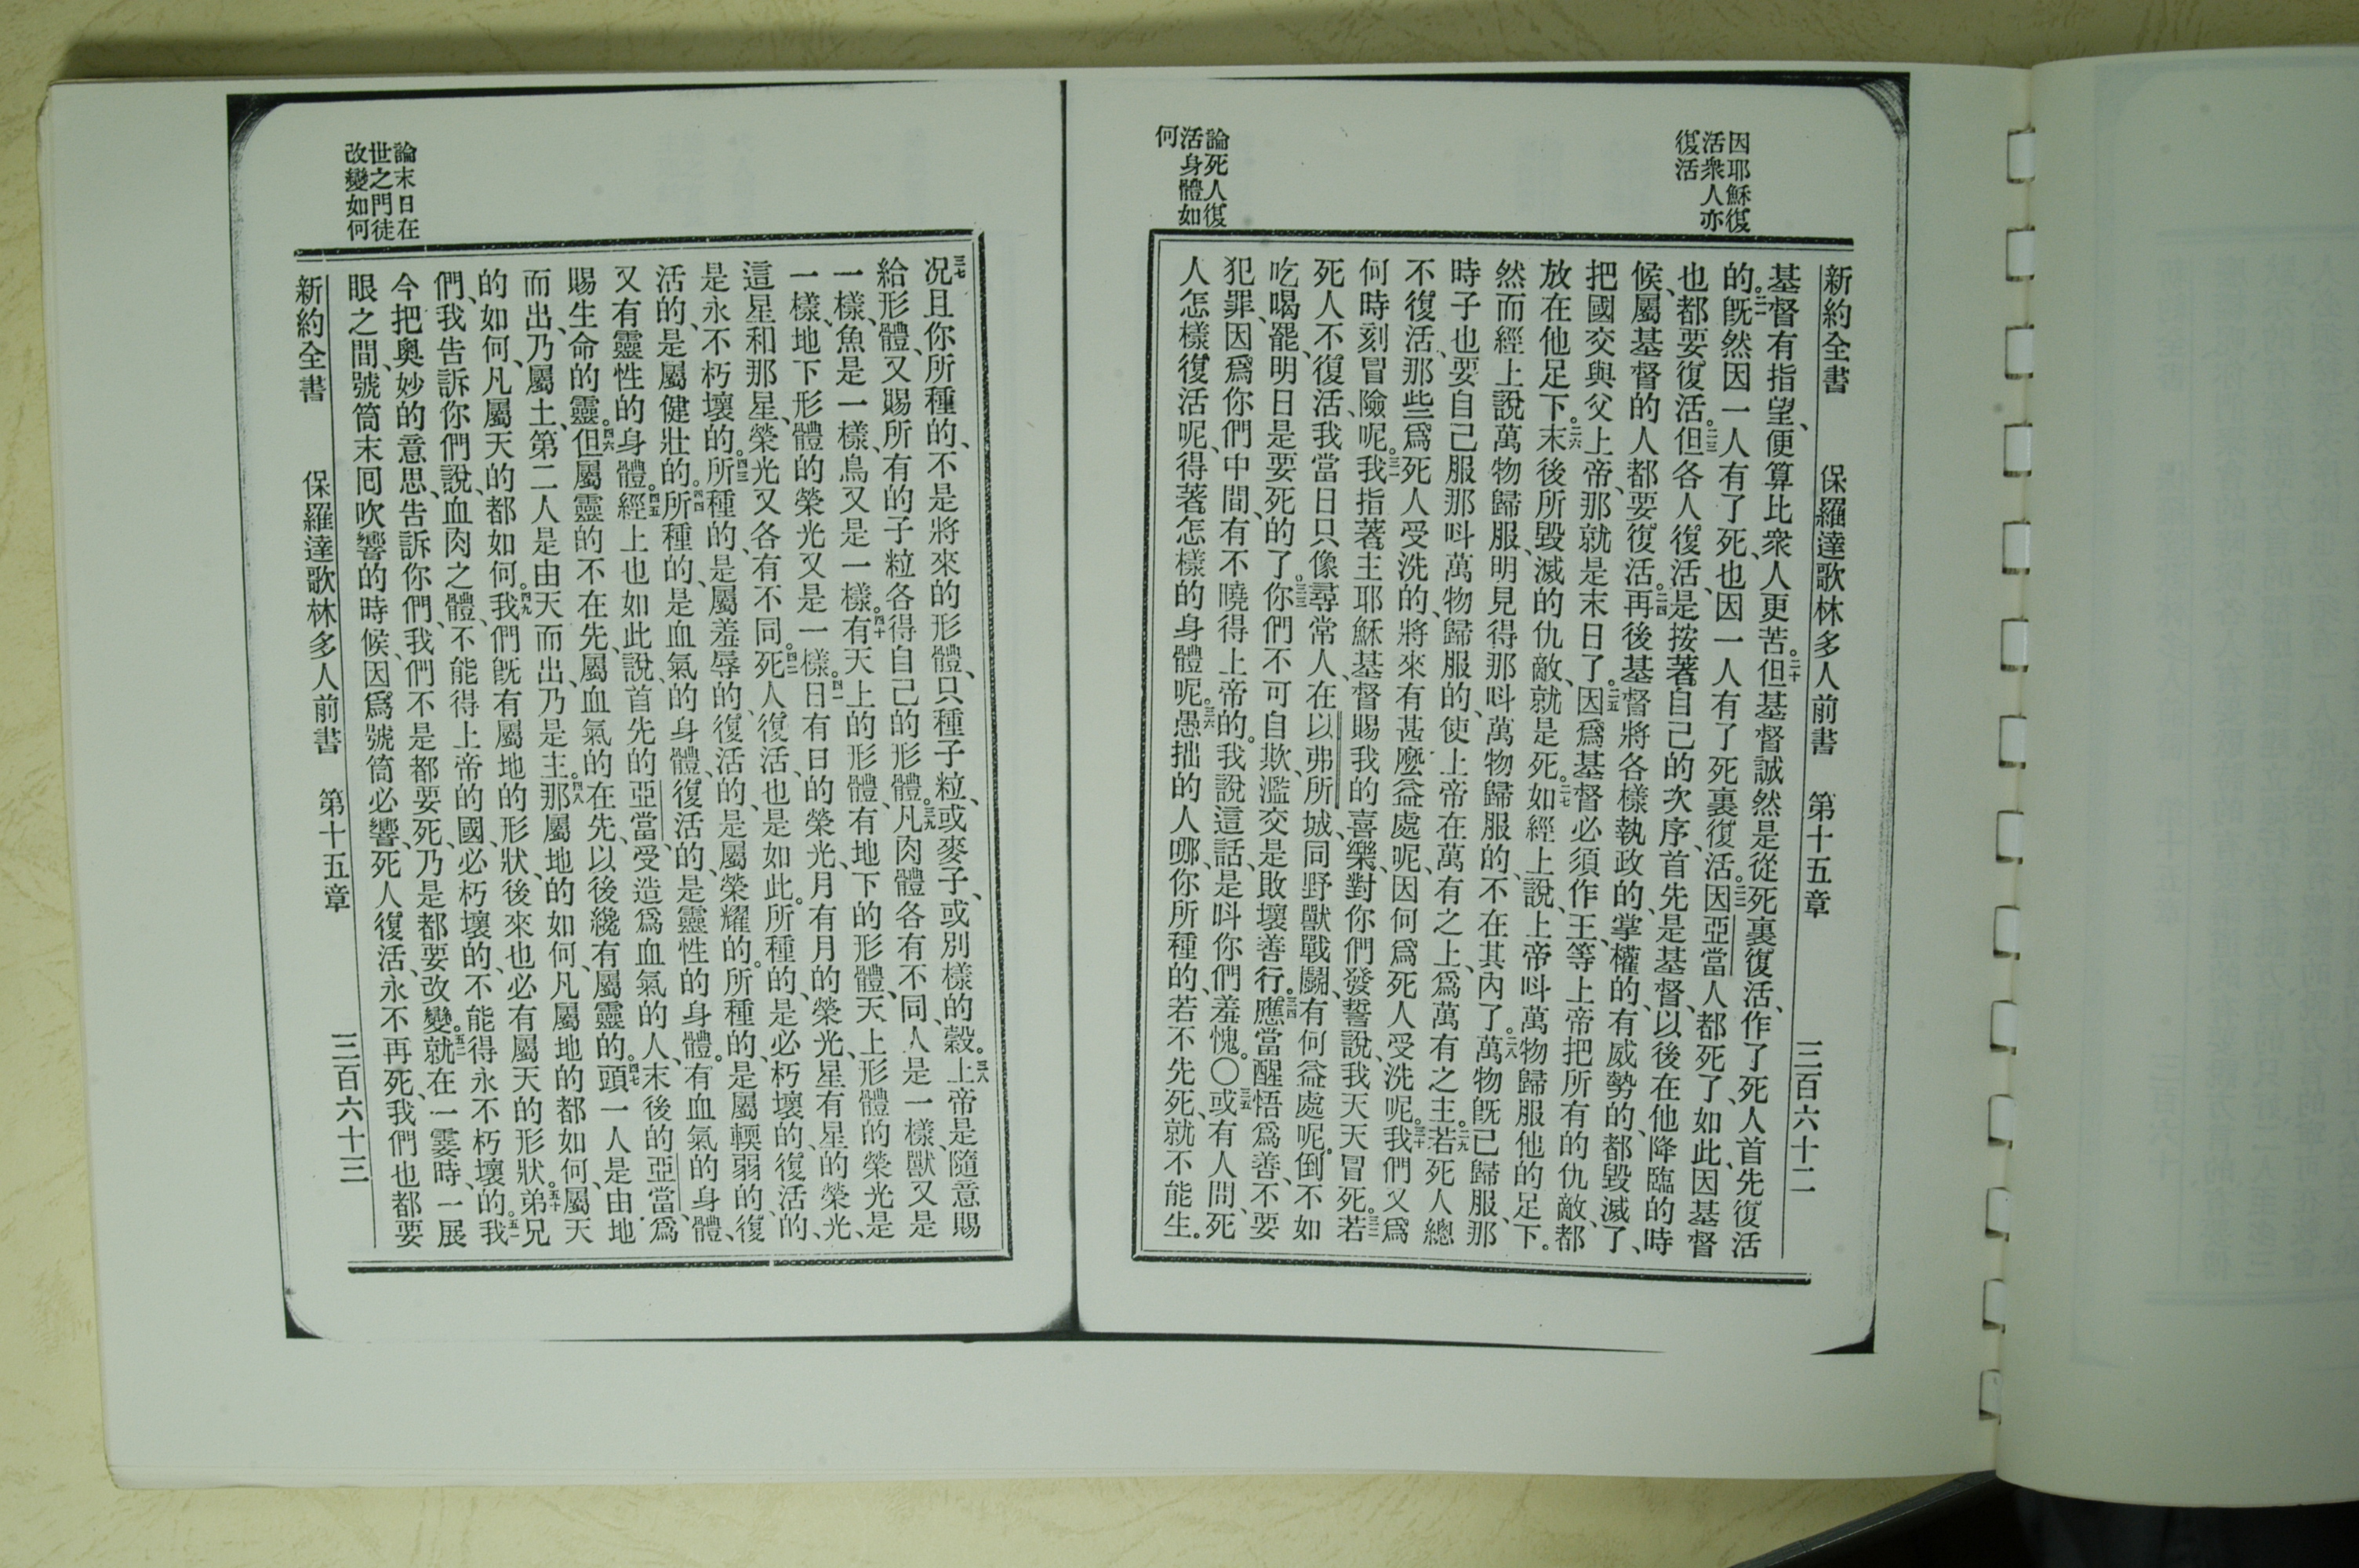 因耶穌復
活衆人亦
復活
論死人復
活身體如
何
新約全書 保羅達歌林多人前書 第十五章 三百六十二
基督有指望、便算比衆人更苦。二十但基督誠然是從死裏復活、作了死人首先復活
的。二一旣然因一人有了死、也因一人有了死裏復活。二二因亞當人都死了、如此因基督
也都要復活。二三但各人復活、是按著自己的次序、首先是基督、以後在他降臨的時
候、屬基督的人都要復活。二四再後基督將各樣執政的、掌權的、有威勢的、都毀滅了、
把國交與父上帝、那就是末日了。二五因爲基督必須作王、等上帝把所有的仇敵、都
放在他足下。二六末後所毀滅的仇敵、就是死。二七如經上說、上帝呌萬物歸服他的足下。
然而經上說萬物歸服、明見得那呌萬物歸服的、不在其內了。二八萬物旣已歸服、那
時子也、要自己服那呌萬物歸服的、使上帝在萬有之上、爲萬有之主。二九若死人總
不復活、那些爲死人受洗的、將來有甚麼益處呢、因何爲死人受洗呢。三十我們又爲
何時刻冒險呢。三一我指著主耶穌基督賜我的喜樂、對你們發誓說、我天天冒死。三二若
死人不復活、我當日只像尋常人、在以弗所城、同野獸戰鬬、有何益處呢。倒不如
吃喝罷、明日是要死的了。三三你們不可自欺、濫交是敗壞善行。三四應當醒悟爲善、不要
犯罪、因爲你們中間、有不曉得上帝的。我說這話、是呌你們羞愧。〇三五或有人問、死
人怎樣復活呢、得著怎樣的身體呢。三六愚拙的人哪、你所種的、若不先死、就不能生。
論末日在
世之門徒
改變如何
三七况且你所種的、不是將來的形體、只種子粒、或麥子、或別樣的穀。三八上帝是隨意賜
給形體、又賜所有的子粒各得自己的形體。三九凡肉體各有不同、人是一樣、獸又是
一樣、魚是一樣、鳥又是一樣。四十有天上的形體、有地下的形體、天上形體的榮光是
一樣、地下形體的榮光又是一樣。四一日有日的榮光、月有月的榮光、星有星的榮光、
這星和那星、榮光又各有不同。四二死人復活、也是如此。所種的、是必朽壞的、復活的、
是永不朽壞的。四三所種的、是屬羞辱的、復活的、是屬榮耀的。所種的、是屬輭弱的、復
活的、是屬健壯的。四四所種的、是血氣的身體、復活的、是靈性的身體。有血氣的身體、
又有靈性的身體。四五經上也如此說、首先的亞當、受造爲血氣的人、末後的亞當、爲
賜生命的靈。四六但屬靈的不在先、屬血氣的在先、以後纔有屬靈的。四七頭一人是由地
而出、乃屬土、第二人是由天而出、乃是主。四八那屬地的如何、凡屬地的都如何、屬天
的如何、凡屬天的都如何。四九我們旣有屬地的形狀、後來也必有屬天的形狀。五十弟兄
們、我告訴你們說、血肉之體、不能得上帝的國、必朽壞的、不能得永不朽壞的。五一我
今把奧妙的意思、告訴你們、我們不是都要死、乃是都要改變。五二就在一霎時、一展
眼之間、號筒末囘吹響的時候、因爲號筒必響、死人復活、永不再死、我們也都要
新約全書 保羅達歌林多人前書 第十五章 三百六十三